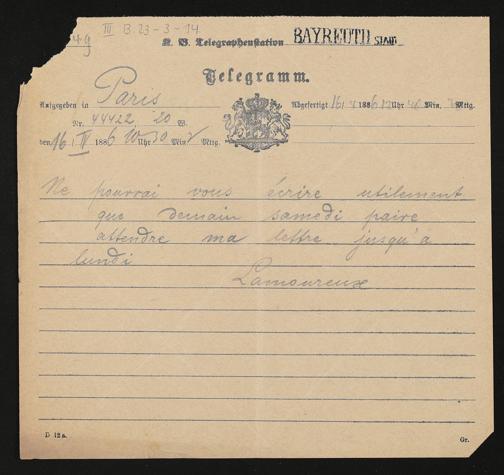 III B. 23-3-14
49
9
K. B. Telegraphenstation BAYREUTH STADT
Telegramm.
Aufgegeben in Paris
Abgefertigt 16/ 4 1886, 12 Uhr Min. Mttg.
Nr. 44422 20 W.
den 16/ IV 1886 10 Uhr 30 Min Mttg.
Ne pourrai vous écrire utilement
que demain samedi paire
attendre ma lettre jusqu'à
lundi
Lamoureux
D 12 a.
Gr.